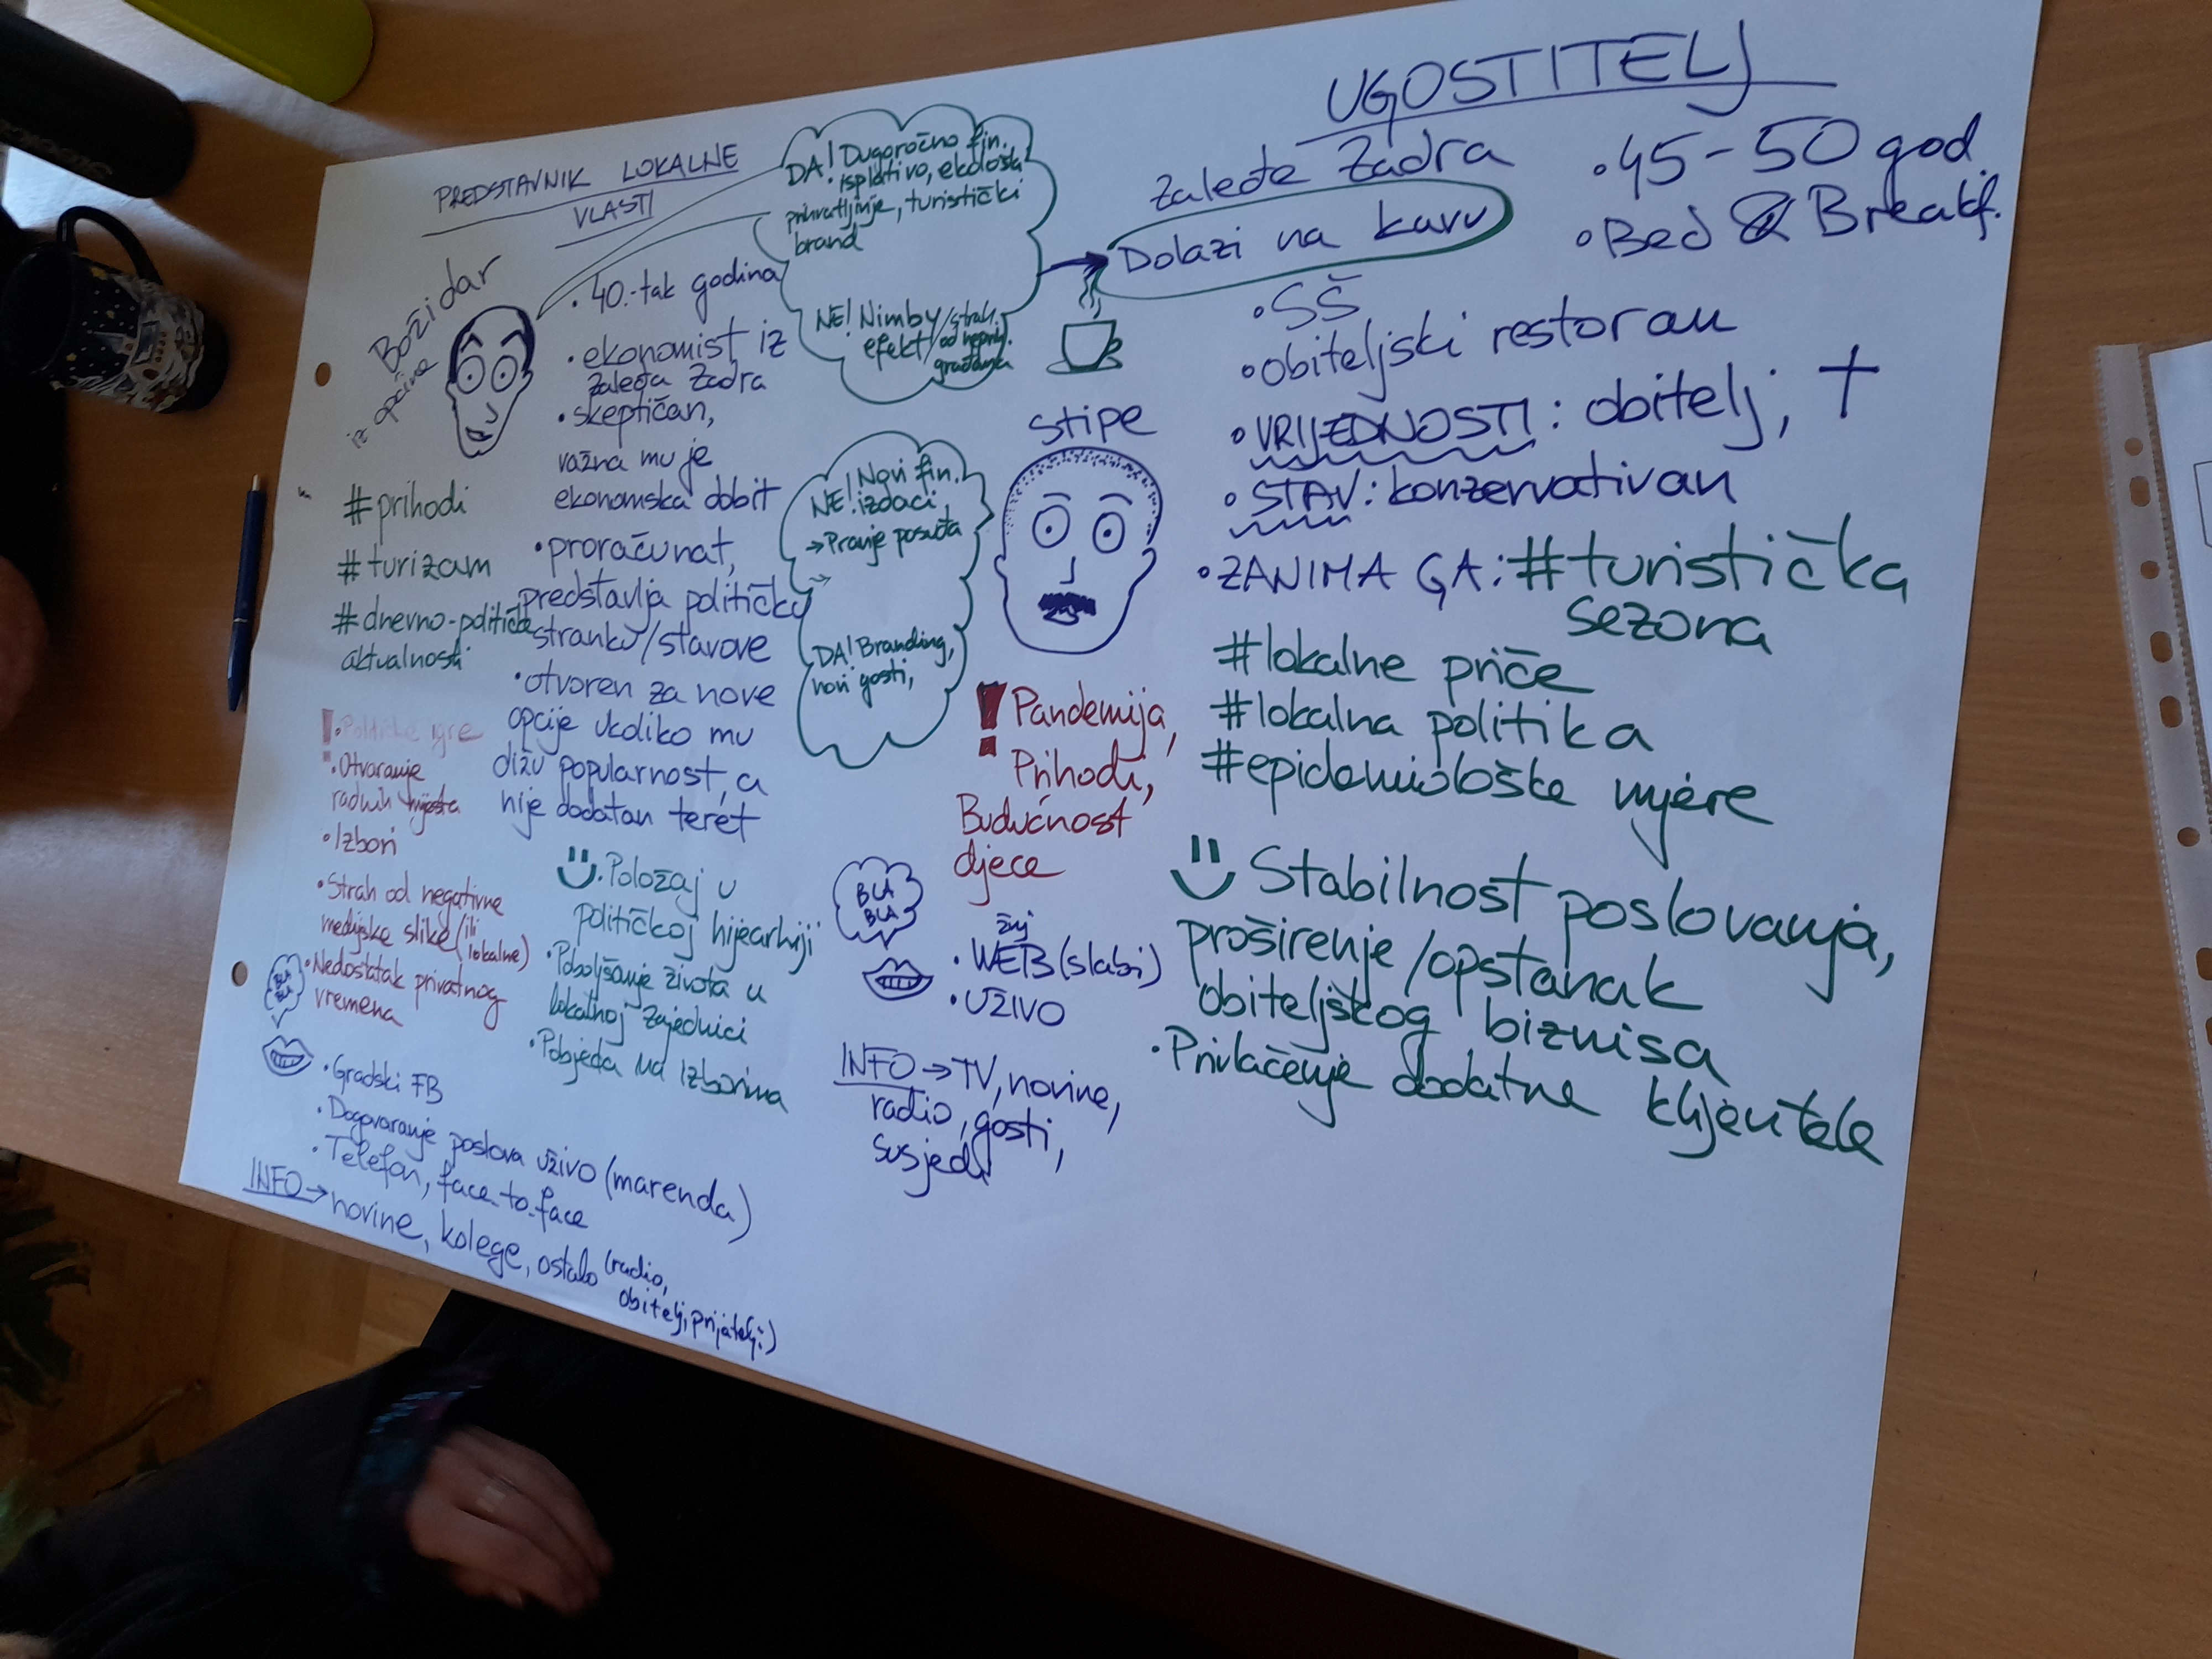 PREDSTAVNIK LOKALNE
VLASTI
Božidar
iz općine
• 40.-tak godina
• ekonomist iz
zaleđa Zadra
• skeptičan,
važna mu je
ekonomska dobit
• proračunat,
predstavlja političku
stranku/stavove
• otvoren za nove
opcije ukoliko mu
dižu popularnost, a
nije dodatan teret
#prihodi
#turizam
#dnevno-političke
aktualnosti
! • Političke igre
• Otvaranje
radnih mjesta
• Izbori
• Strah od negativne
medijske slike (ili
lokalne)
• Nedostatak privatnog
vremena
• Položaj u
političkoj hijearhiji
• Poboljšanje života u
lokalnoj zajednici
• Pobjeda na izborima
BLA
BLA
• Gradski FB
• Dogovaranje poslova uživo (marenda)
• Telefon, face-to-face
INFO → novine, kolege, ostalo (radio,
obitelj, prijatelji:)
DA! Dugoročno fin.
isplativo, ekološki
prihvatljivije, turistički
brand
NE! Nimby / strah
efekt / od neprij.
građana
UGOSTITELJ
Zaleđe Zadra
Dolazi na kavu
• 45-50 god.
• Bed & Breakf.
• SŠ
• Obiteljski restoran
• VRIJEDNOSTI: obitelj, †
• STAV: konzervativan
• ZANIMA GA: #turistička
sezona
#lokalne priče
#lokalna politika
#epidemiološke mjere
Stipe
NE! Novi fin.
izdaci
→ Pranje posuđa
DA! Branding,
novi gosti,
! Pandemija,
Prihodi,
Budućnost
djece
Stabilnost poslovanja,
proširenje/opstanak
obiteljskog biznisa
• Privlačenje dodatne klijentele
BLA
BLA
• WEB (slabi)
• UŽIVO
INFO → TV, novine,
radio, gosti,
susjedi